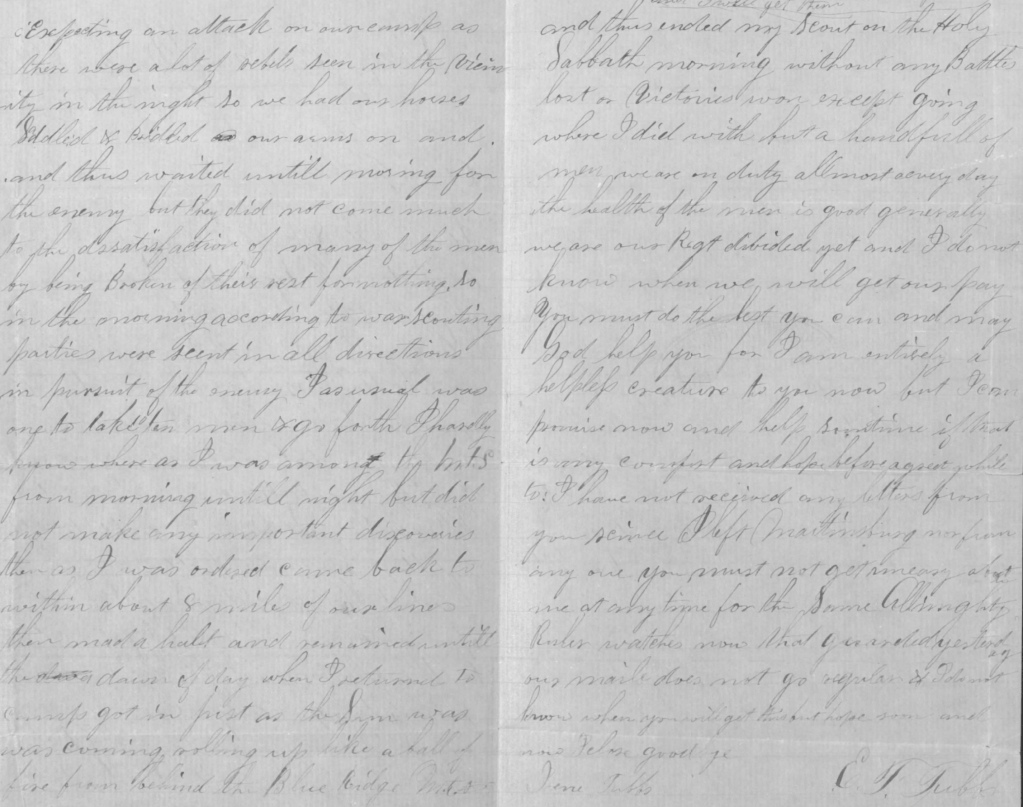 Expecting an attack on our camp as
there were a lot of rebels seen in the Vicin
ity in the night so we had our horses
Saddled & bridled our arms on and
and thus waited untill moring for
the enemy but they did not come much
to the dissatisfaction of many of the men
by being Broken of their rest for nothing, so
in the morning according to war scouting
parties were scent in all directions
in pursuit of the enemy I as usual was
one to take ten men & go forth I hardly
know where as I was among
from morning untill night but did
not make any important discoveries
then as I was ordered came back to
within about 8 miles of our lines
then mad a halt and remained untill
the dawn of day when I returned to
camp got in just as the Sun was
was coming rolling up like a ball of
fire from behind the Blue Ridge
and thus ended my Scout on the Holy
Sabbath morning without any Battles
lost or Victories won except going
where I did with but a handfull of
men, we are on duty allmost every day
the health of the men is good generally
we are our Regt divided yet and I do not
know when we will get our pay
You must do the best you can and may
God help you for I am entirely a
helpless creature to you now but I can
promise now and help sometime if that
is any comfort and hope before
to: I have not received any letters from
you scince I left Martinsburg nor from
any one you must not get uneasy about
me at any time for the Same Allmighty
Ruler watches now that guarded yesterday
our mail does not go regular & I do not
know when you will get this but hope soon and
now I close good
Irene Tubbs E. T. Tubbs